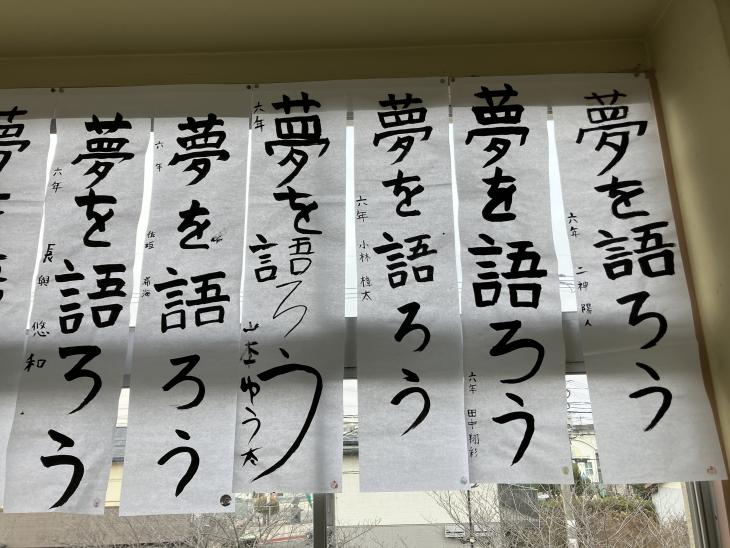 夢を語ろう
六年 二神 陽人
夢を語ろう
六年 田中 翔彩
夢を語ろう
六年 小林 桂太
夢を語ろう
六年 山本ゆう太
夢を語ろう
六年 佐坂
夢を語ろう
六年 長與 悠和
夢を